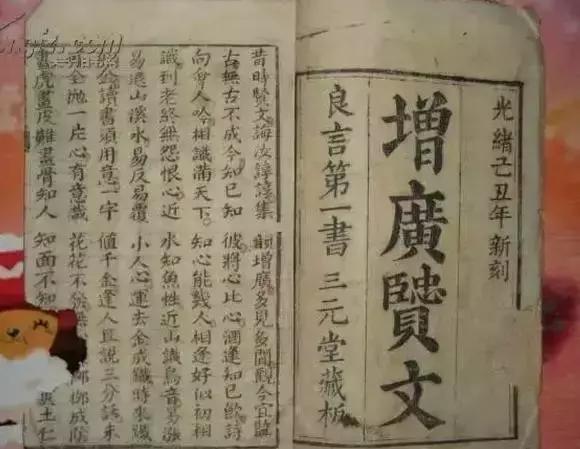 光緒己丑年新刻
增廣贒文
良言第一書 三元堂藏板
昔時賢文誨汝諄諄集 韻增廣多見多聞觀今宜鑒
古無古不成今知己知 彼將心比心酒逢知己飲詩
向會人吟相識滿天下 知心能幾人相逢好似初相
識到老終無怨恨心近 水知魚性近山識鳥音易漲
易退山溪水易反易覆 小人心運去金成鐵時來鐵
似金讀書須用意一字 值千金逢人且說三分話未
可全抛一片心有意栽 花花不發無 柳柳成陰
畫虎畫皮難畫骨知人 知面不知 與土仁